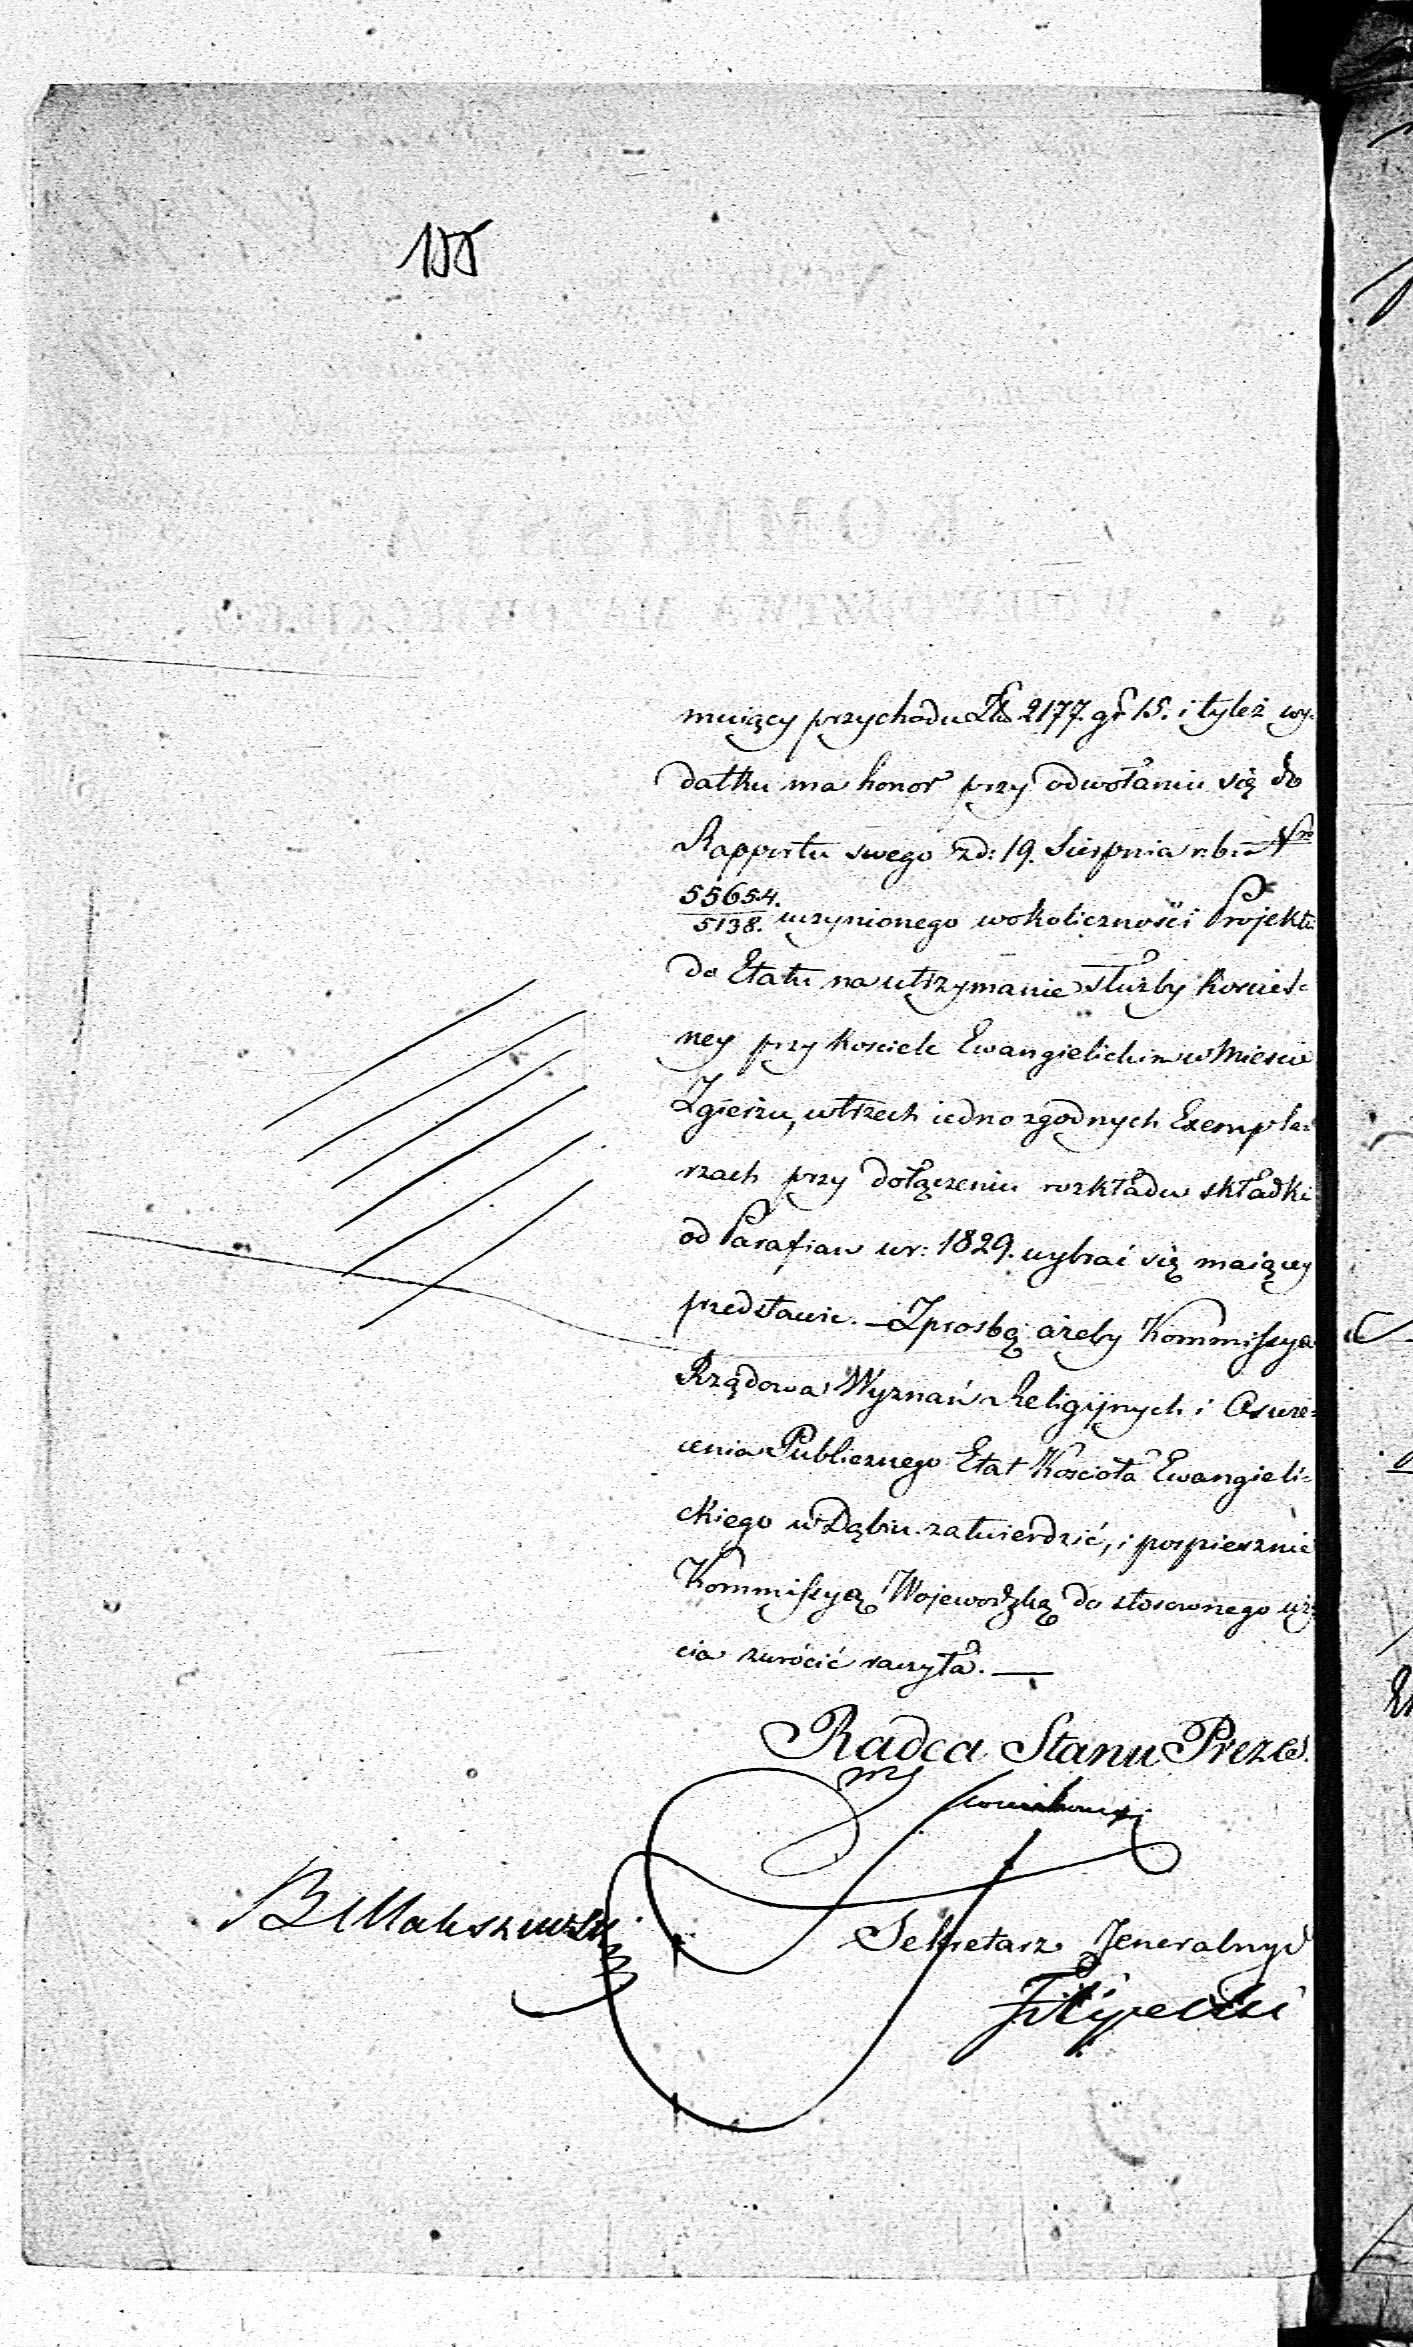 155
muiący przychodu Zł 2177. gr 15. i tyleż wy-
datku ma honor przy odwołaniu się do
Rapportu swego z d: 19. Sierpnia r. b. Nro
55654./5138. uczynionego w okoliczności Projektu
do Etatu na utrzymanie służby kościel-
ney przy kościele Ewangielickim w Mieście
Zgierzu, w trzech iednozgodnych Exempla-
rzach przy dołączeniu rozkładu składki
od Parafian w r: 1829. wybrać się maiącey
przedstawić. — Z prośbą ażeby Kommissya
Rządowa Wyznań Religijnych i Oświe-
cenia Publicznego Etat Kościoła Ewangieli-
ckiego w Dąbiu zatwierdzić, i pospiesznie
Kommissyą Wojewodzką do stosownego uży-
cia zwrócić raczyła. —
Radca Stanu Prezes.
Sekretarz Jeneralny
Filipecki